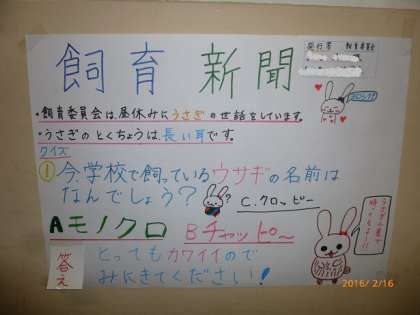 飼育 新聞
発行者 飼育委員会
・飼育委員会は、昼休みにうさぎの世話をしています。
・うさぎのとくちょうは、長い耳です。
クイズ
①今、学校で飼っているウサギの名前は
なんでしょう?
?
C.クロッピー
Aモノクロ Bチャッピ〜
答え
とってもカワイイので
みにきてください!
2016/2/16